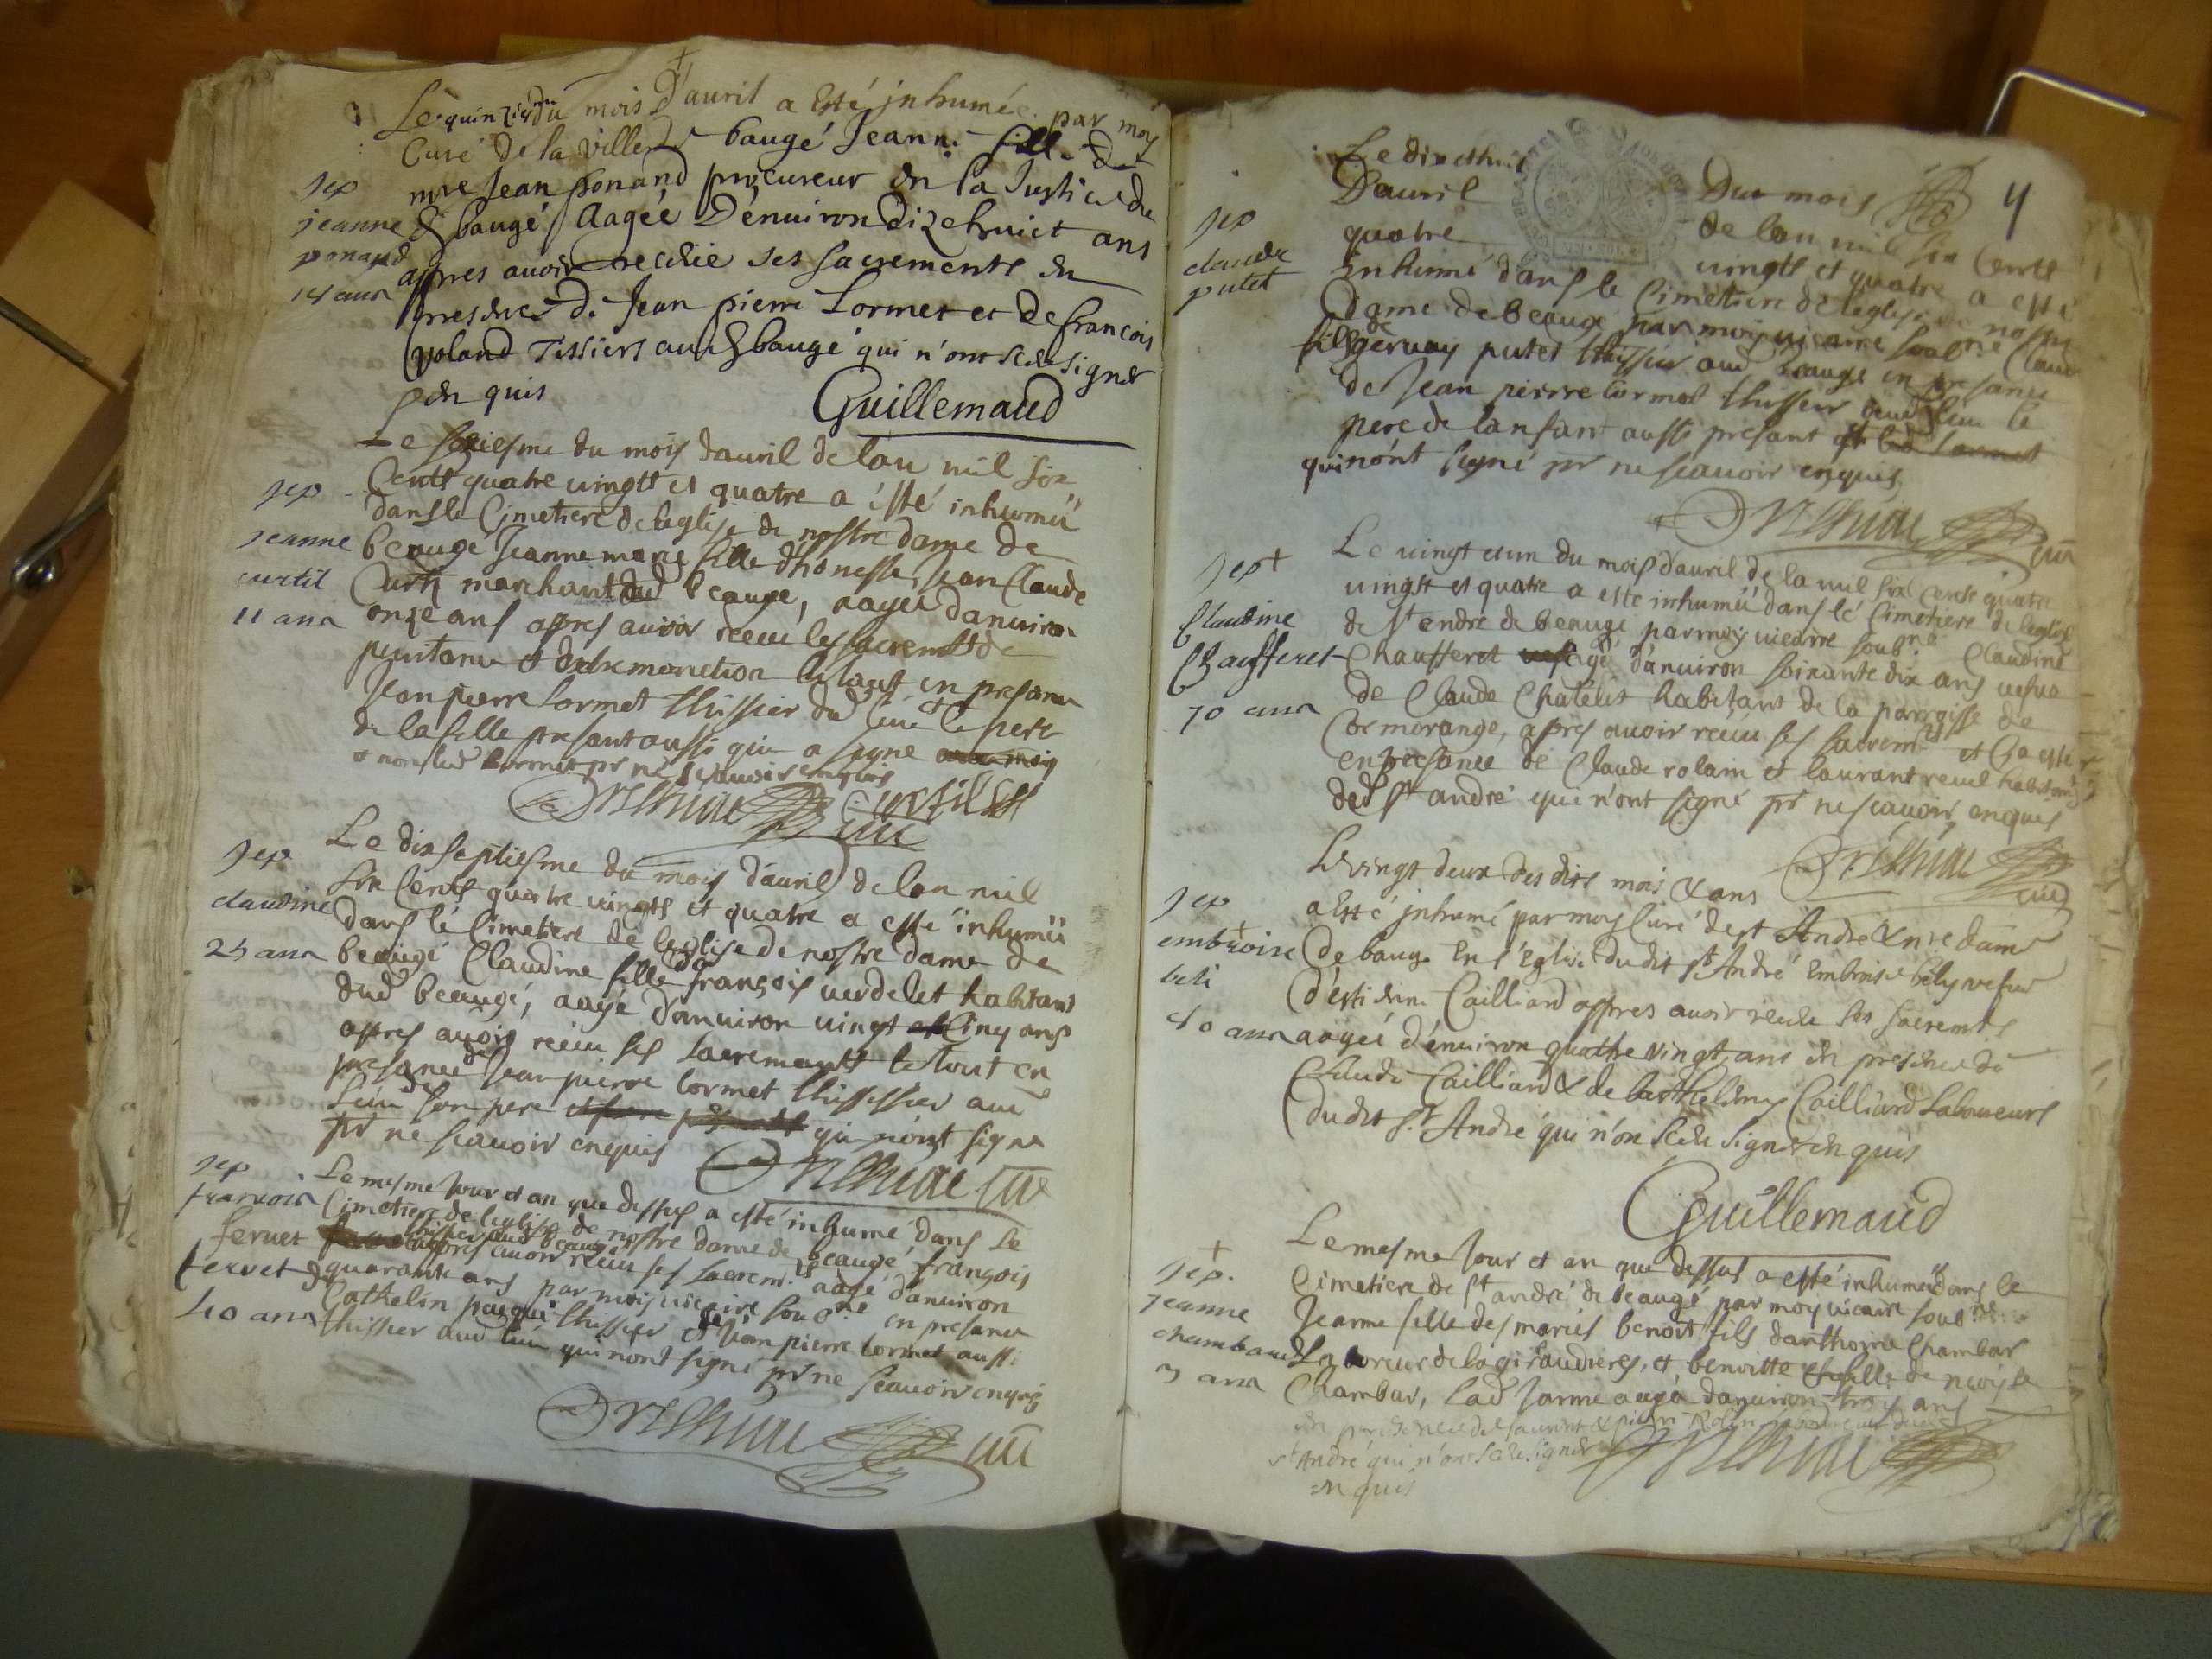 Le quinzie du mois d'auril a esté inhumée par moy
Curé de la ville de baugé Jeanne fille de
mre Jean ponand procureur en la Justice du
d baugé aagée d'enuiron dizehuict ans
sep
jeanne
ponand
14 ans
appres auoir receüe ses sacrements en
presence de Jean pierre Lormet et de francois
voland Tissiers aud baugé qui n'ont sceu signer
enquis
Guillemaud
Le seziesme du mois dauril de lan mil six
Cents quatre uingtt et quatre a ésté inhumeé
dans le Cimetiere de leglise de nostre dame de
beaugé Jeanne marie fille d'honneste Jean Claude
Curti marchant dud beauge, aagee danuiron
onze ans appres auoir receu les sacremtt de
penitance et dextremonction le tout en presance
Jean pierre Lormet thissier dud lieu et le pere
de la fille presant aussi qui a signe
et non led Lormet pr ne scauoir enquis
sep
jeanne
curtil
11 ans
Curtil
Le dix septiesme du mois d'auril de lan mil
six Cents quatre uingts et quatre a esté inhumeé
dans lé Cimetiere de leglise de nostre dame de
beaugé Claudine fille de françois uerdelet habitant
dud beaugé, aagé danuiron uingt Cinq ans
appres auoir réceu ses sacremantt le tout en
presance de Jean pierre Lormet thississier aud
lieu de son pere qui n'ont signe
pr né scauoir enquis
sep
claudine
25 ans
Le mesme Jour et an que dessus a esté inhumé dans le
Cimetiere de leglise de nostre dame de beaugé françois
feruet thissier aud beaugé
appres auoir réceu ses sacrem.ts aagé danuiron
quarante ans par moy uicaire soub.né en presance de
Cathelin paequi thissier et de Jean pierre Lormet aussi
thissier aud lieu qui nont signé pr ne scauoir enquis
sep
francois
feruet
40 ans
4
Le dix et huit Du mois
D'auril de lan mil six Cents
quatre uingtt et quatre a esté
inhumé dans le Cimetiere de leglise de nostre
Dame de beaugé par moy uicaire soub.né Claud
fils de geruay putet thissier aud beaugé en presance
de Jean pierre Lormet thissier dud lieu le
pere de lanfant aussi présant
qui n'ont signé pr ne scauoir enquis
sep
claude
putet
Le uingt et un du mois dauril de la mil six Cents quatre
uingtt et quatre a este inhumeé dans lé Cimetiere de leglise
de st andre de beaugé par moy uicaire soub.né Claudine
Chaufferet agé d'anuiron soixante dix ans uefue
de Claude Chatelet habitant de la parroisse de
Cormorange, appres auoir réceu ses sacrem.ts et Ça esté
en presance de Claude rolain et laurant reuel habitants
ded st andré qui n'ont signé pr ne scauoir enquis
sep
Claudine
Chaufferet
70 ans
Le vingt deux des dits mois & ans
a Esté inhumé par moy Curé de st André & nre dame
de bauge En l'Eglise dudit st André Embroise bely vefue
d'estienne Cailliard appres auoir receu ses sacremts
aagée d'énuiron quattre vingt ans en presence de
Claude Cailliard & de barthelemy Cailliard Laboureurs
dudit st André qui n'on sceu signer enquis
sep
embroise
beli
80 ans
Guillemaud
Le mesme Jour et an que dessus a esté inhumeé dans le
Cimetiere de st andré de beaugé par moy uicaire soub.né
Jeanne fille des mariés benoit fils danthoine Chambar
Laboureur et benoitte fille de
Chambar, lad Janne aagé danuiron trois ans
en presence de laurent & pierre Rolin
st André qui n'ont sceu signer
enquis
sep.
Jeanne
chambard
3 ans